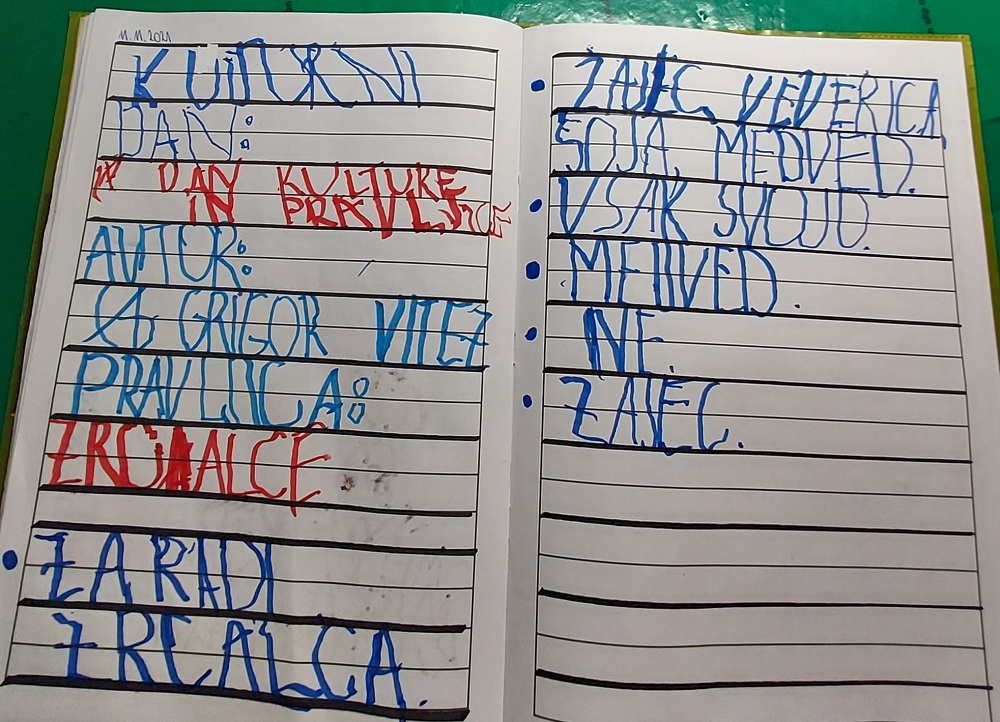 11.11.2021
KULTURNI
DAN:
DAN KULTURE
IN PRAVLJICE
AVTOR:
GRIGOR VITEZ
PRAVLJICA:
ZRCALCE
ZARADI
ZRCALCA.
ZAJEC, VEVERICA,
SOJA, MEDVED.
VSAK SVOJO.
MEDVED.
NE.
ZAJEC.